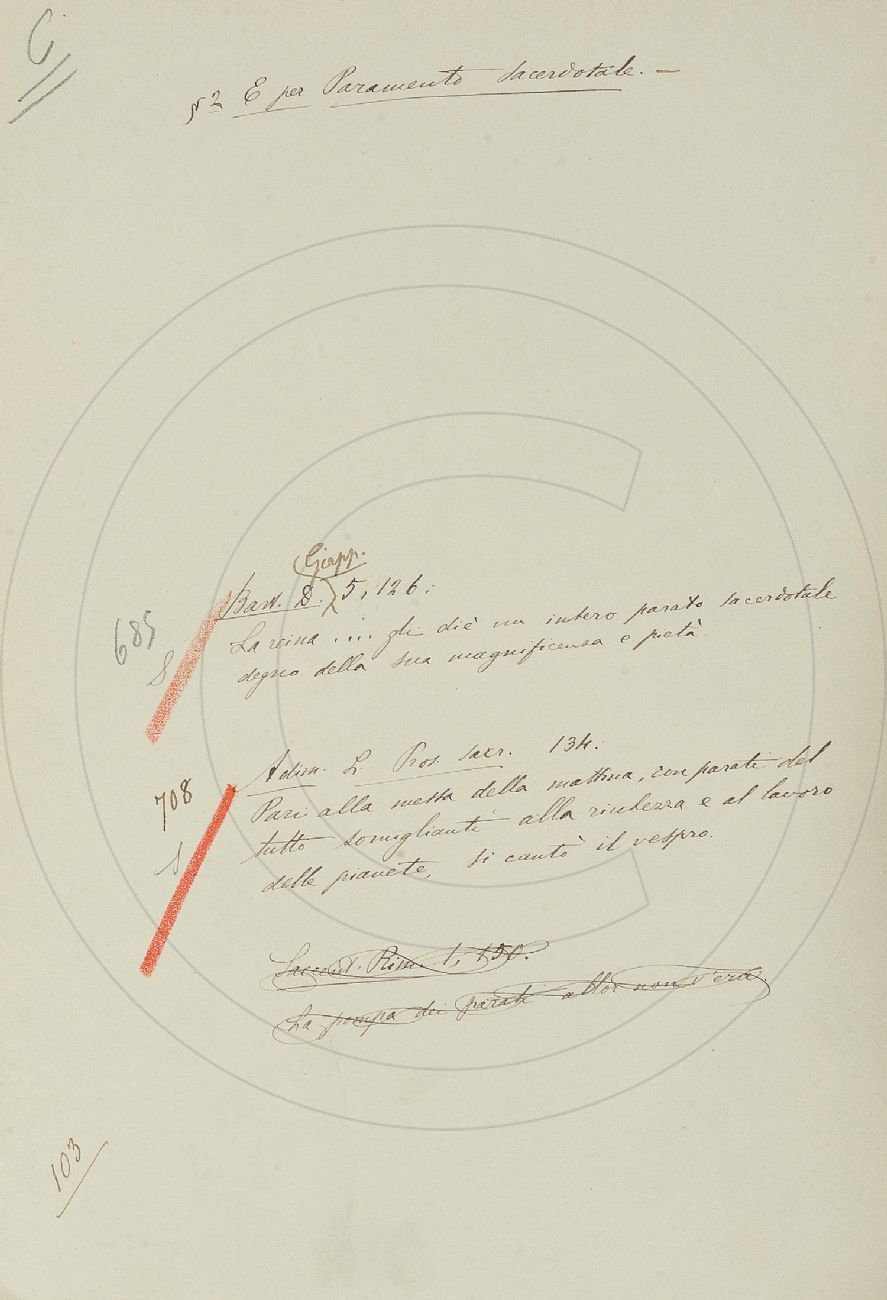 C
§ 2 E per Paramento sacerdotale. —
Giapp.
Bart. D. 5, 126:
685
La reina .... gli diè un intero parato sacerdotale
S
degno della sua magnificenza e pietà.
Adim. L. Pros. sacr. 134:
708
Pari alla messa della mattina, con parati del
tutto somiglianti alla ricchezza e al lavoro
S
delle pianete, si cantò il vespro.
Saccent. Rim. 1, 150:
La pompa dei parati allor non v'era.
103